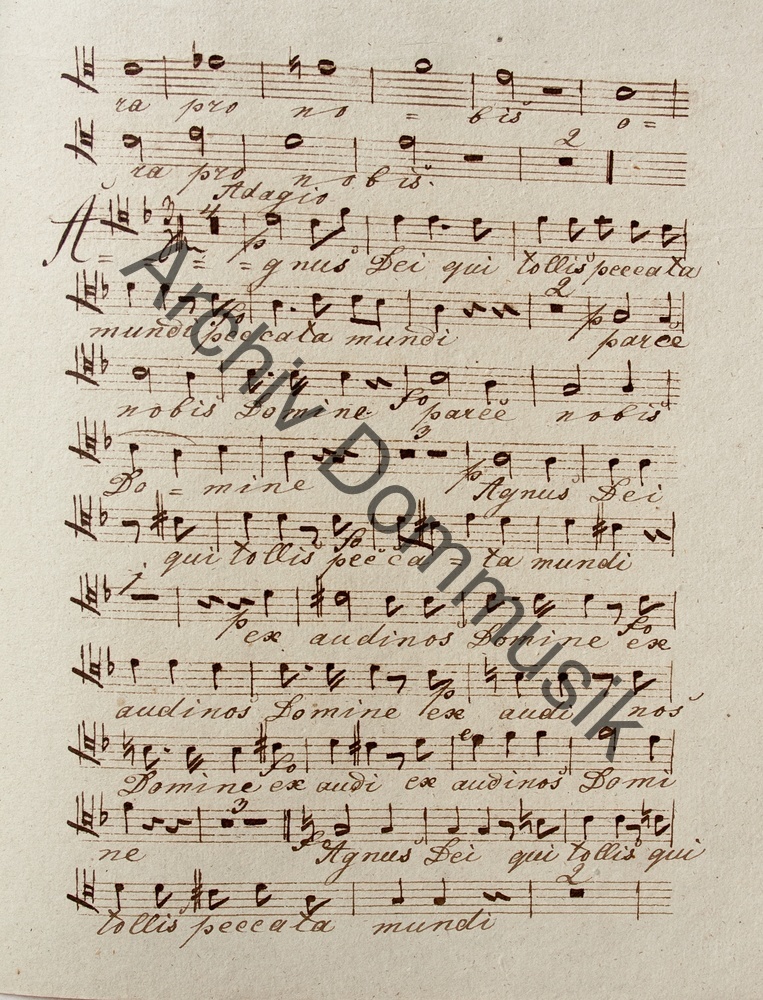 ra pro no = bis o =
2
ra pro nobis.
Adagio
4
A = = = = gnus Dei qui tollis peccata
2
mundi peccata mundi parce
nobis Domine parce nobis
3
Do = mine Agnus Dei
qui tollis pecca = ta mundi
1
ex audi nos Domine ex
audi nos Domine ex audi nos
Domine ex audi ex audi nos Domi
3
ne Agnus Dei qui tollis qui
2
tollis peccata mundi
Archiv Dommusik